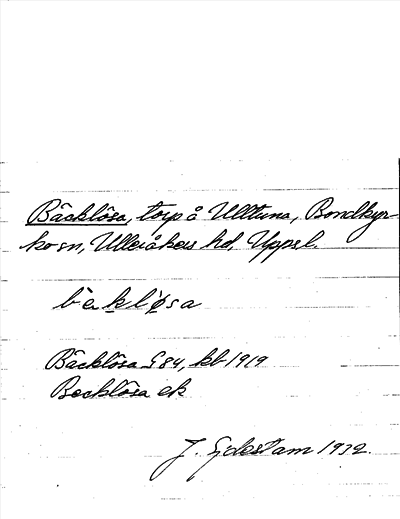 Bäcklösa, torp å Ulltuna, Bondkyr-
ko sn, Ulleråkers hd, Uppsl.
bèklǿsa
Bäcklösa G 84, kb 1919
Becklösa ek
J. Sjdestam 1932.